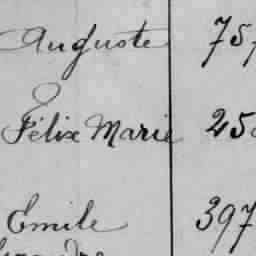 Auguste 757
Félix Marie 25
Emile 397